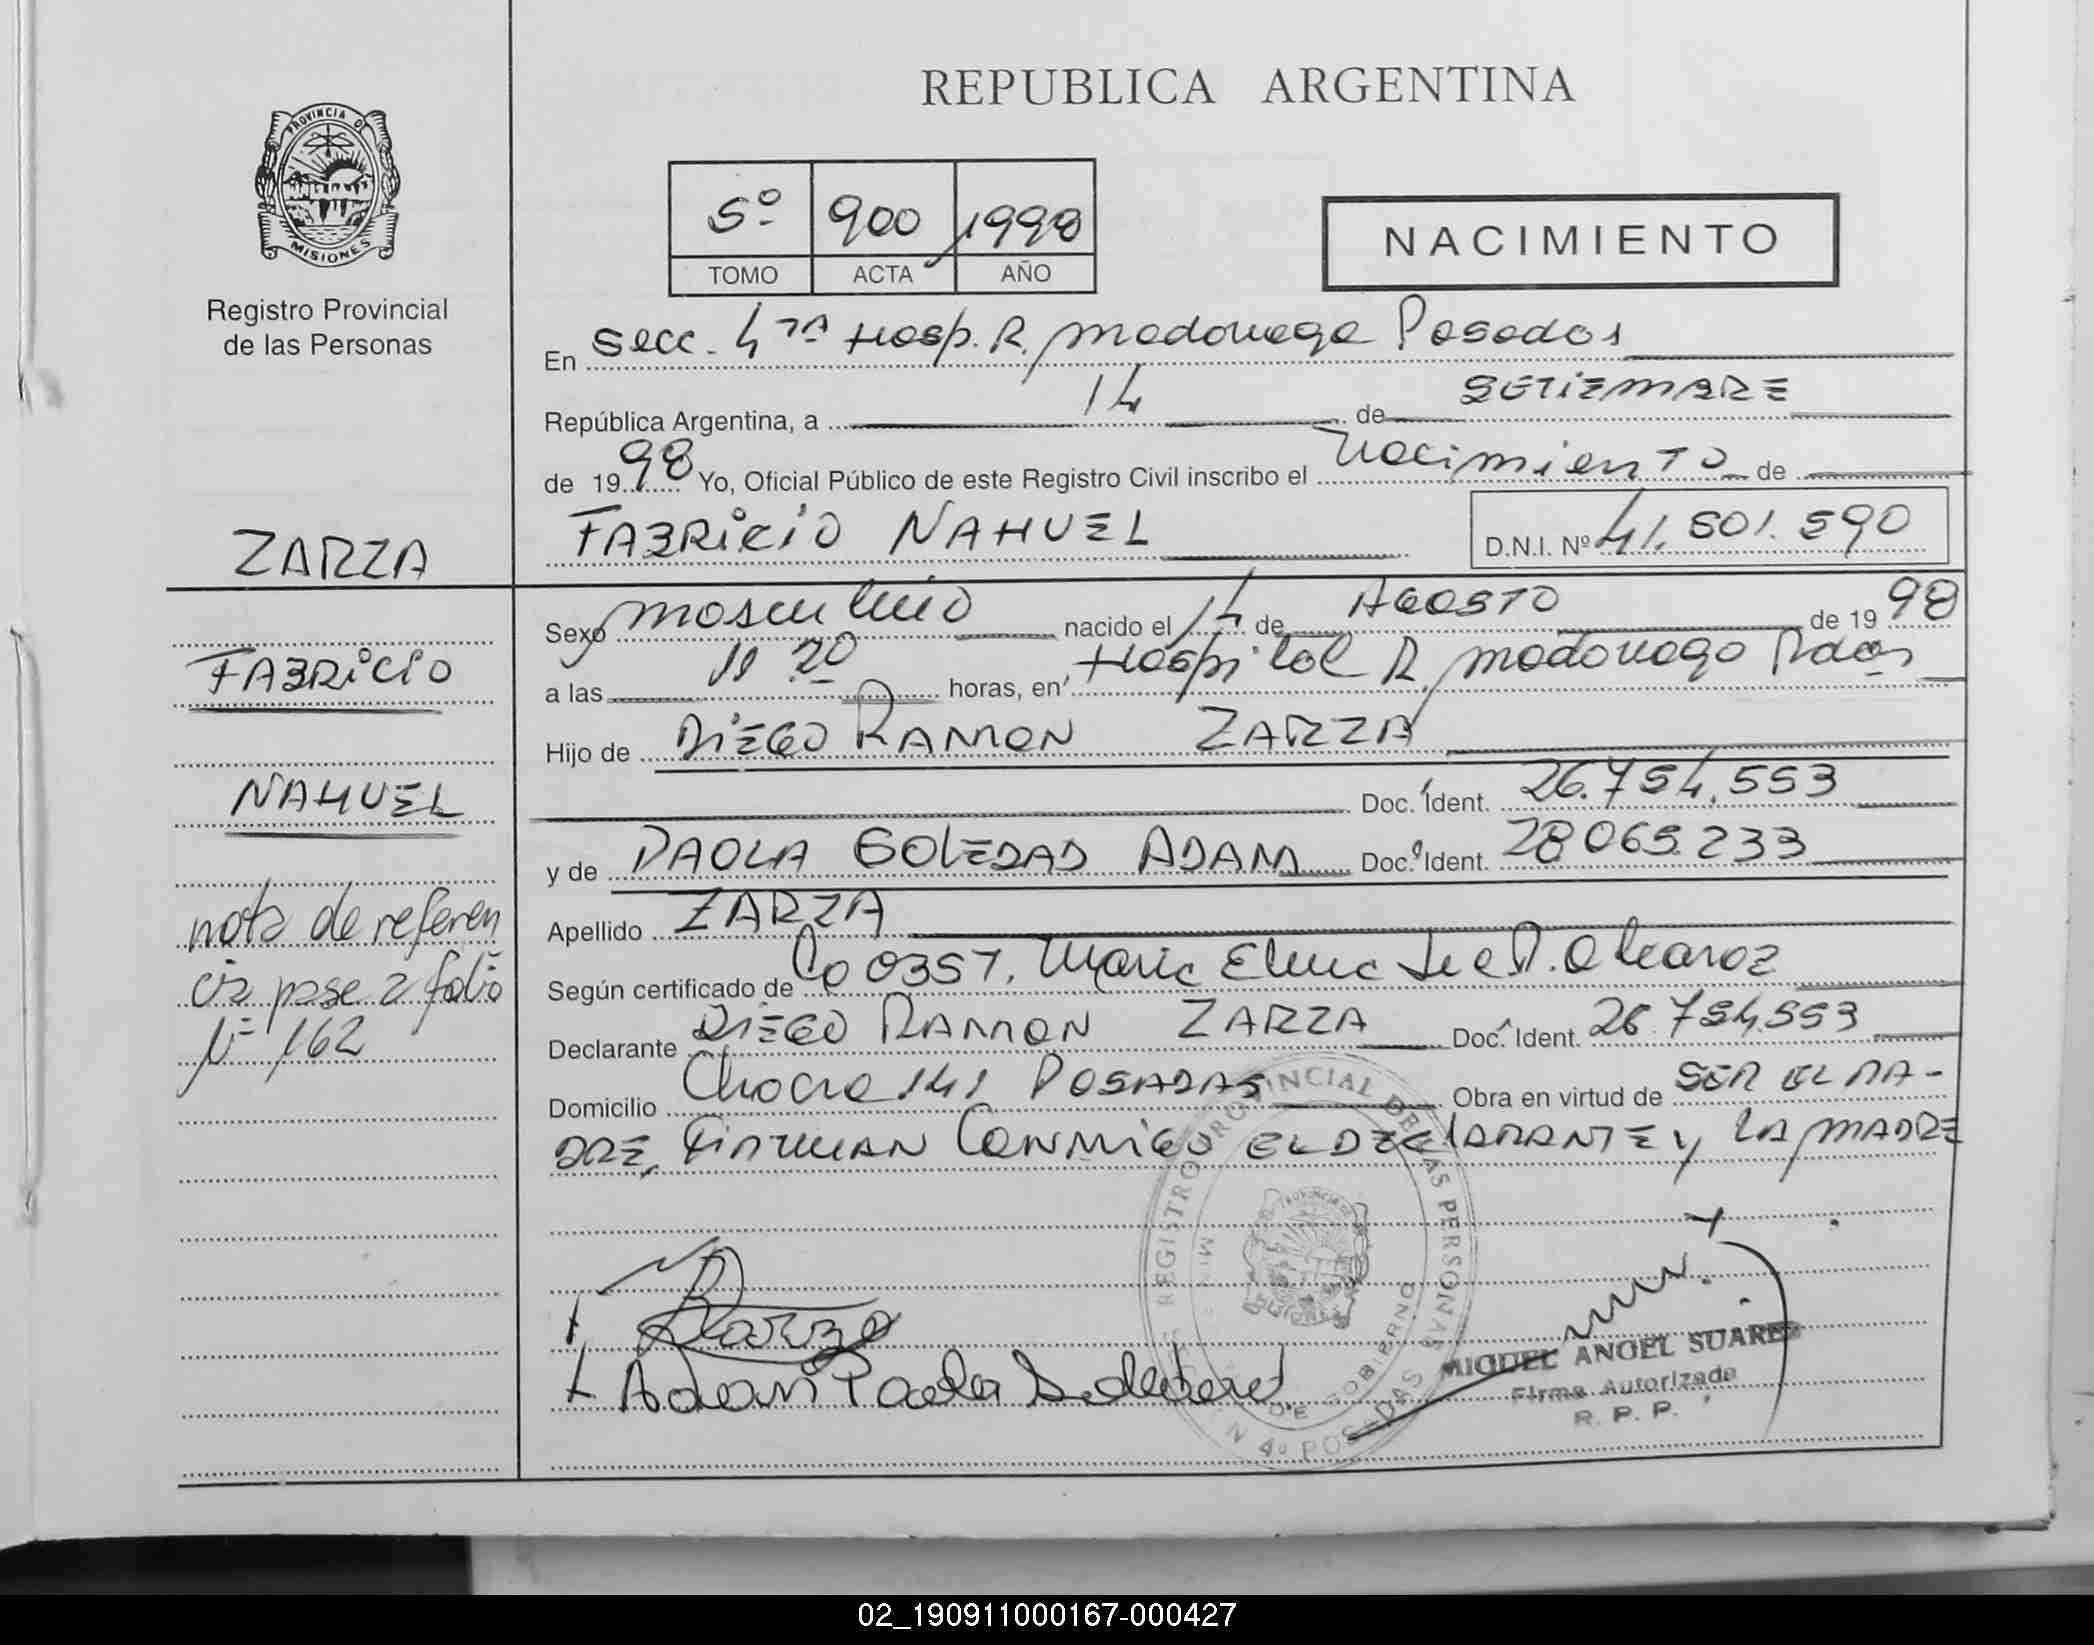 REPUBLICA ARGENTINA
PROVINCIA DE
MISIONES
Registro Provincial
de las Personas
5º 900 1998
TOMO ACTA AÑO
NACIMIENTO
En Secc. 4TA Hosp. R. Madariaga Posadas
República Argentina, a 14 de SETIEMBRE
de 1998 Yo, Oficial Público de este Registro Civil inscribo el Nacimiento de
FABRICIO NAHUEL D.N.I. Nº 41.501.590
ZARZA
FABRICIO
NAHUEL
nota de referen
cia pase a folio
Nº 162
Sexo masculino nacido el 14 de AGOSTO de 1998
a las 11 20 horas, en Hospital R. Madariaga Pdas
Hijo de DIEGO RAMON ZARZA
Doc. Ident. 26.754.553
y de PAOLA SOLEDAD ADAM Doc. Ident. 28065.233
Apellido ZARZA
Según certificado de Co 0357, Maria Elena de Alcaraz
Declarante DIEGO RAMON ZARZA Doc. Ident. 26.754.553
Domicilio Chacra 141 POSADAS Obra en virtud de SER EL PA-
DRE, FIRMAN CONMIGO EL DECLARANTE y LA MADRE
REGISTRO PROVINCIAL DE LAS PERSONAS
DE GOBIERNO
N 4º POSADAS
Zarza
Adam Paola Soledad
MIGUEL ANGEL SUAREZ
Firma Autorizada
R. P. P.
02_190911000167-000427